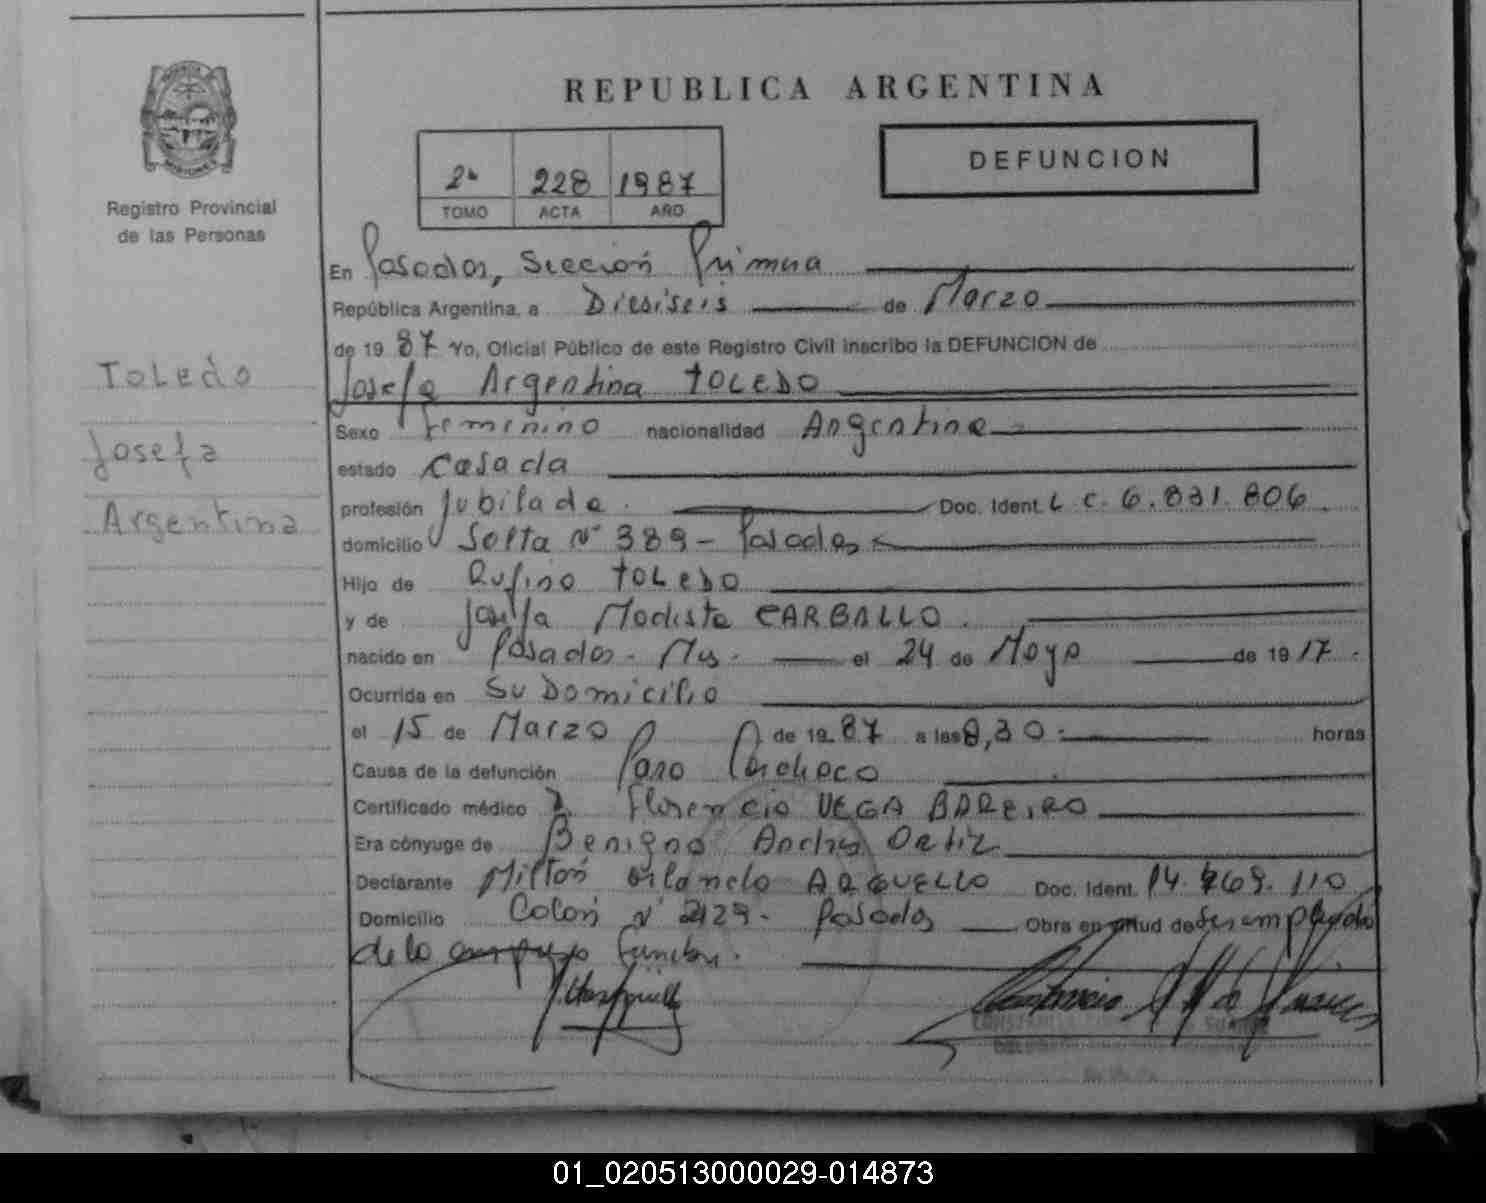 REPUBLICA ARGENTINA
2º 228 1987
TOMO ACTA AÑO
DEFUNCION
Registro Provincial
de las Personas
Toledo
Josefa
Argentina
En Posadas, Sección Primera
República Argentina, a Diesiseis de Marzo
de 19 87 Yo, Oficial Público de este Registro Civil inscribo la DEFUNCION de
Josefa Argentina TOLEDO
Sexo femenino nacionalidad Argentina
estado Casada
profesión Jubilada. Doc. Ident. L.C. 6.831.806
domicilio Salta Nº 389 - Posadas
Hijo de Rufino TOLEDO
y de Josefa Modesta CARBALLO.
nacido en Posadas - Mns. el 24 de Mayo de 19 17.
Ocurrida en Su Domicilio
el 15 de Marzo de 19 87 a las 8,30 horas
Causa de la defunción Paro Cardiaco
Certificado médico Florencio VEGA BAREIRO
Era cónyuge de Benigno Andres Ortiz
Declarante Milton Orlando ARGUELLO Doc. Ident. 14.469.110
Domicilio Colón Nº 2129 - Posadas Obra en virtud de
de la función.
01_020513000029-014873